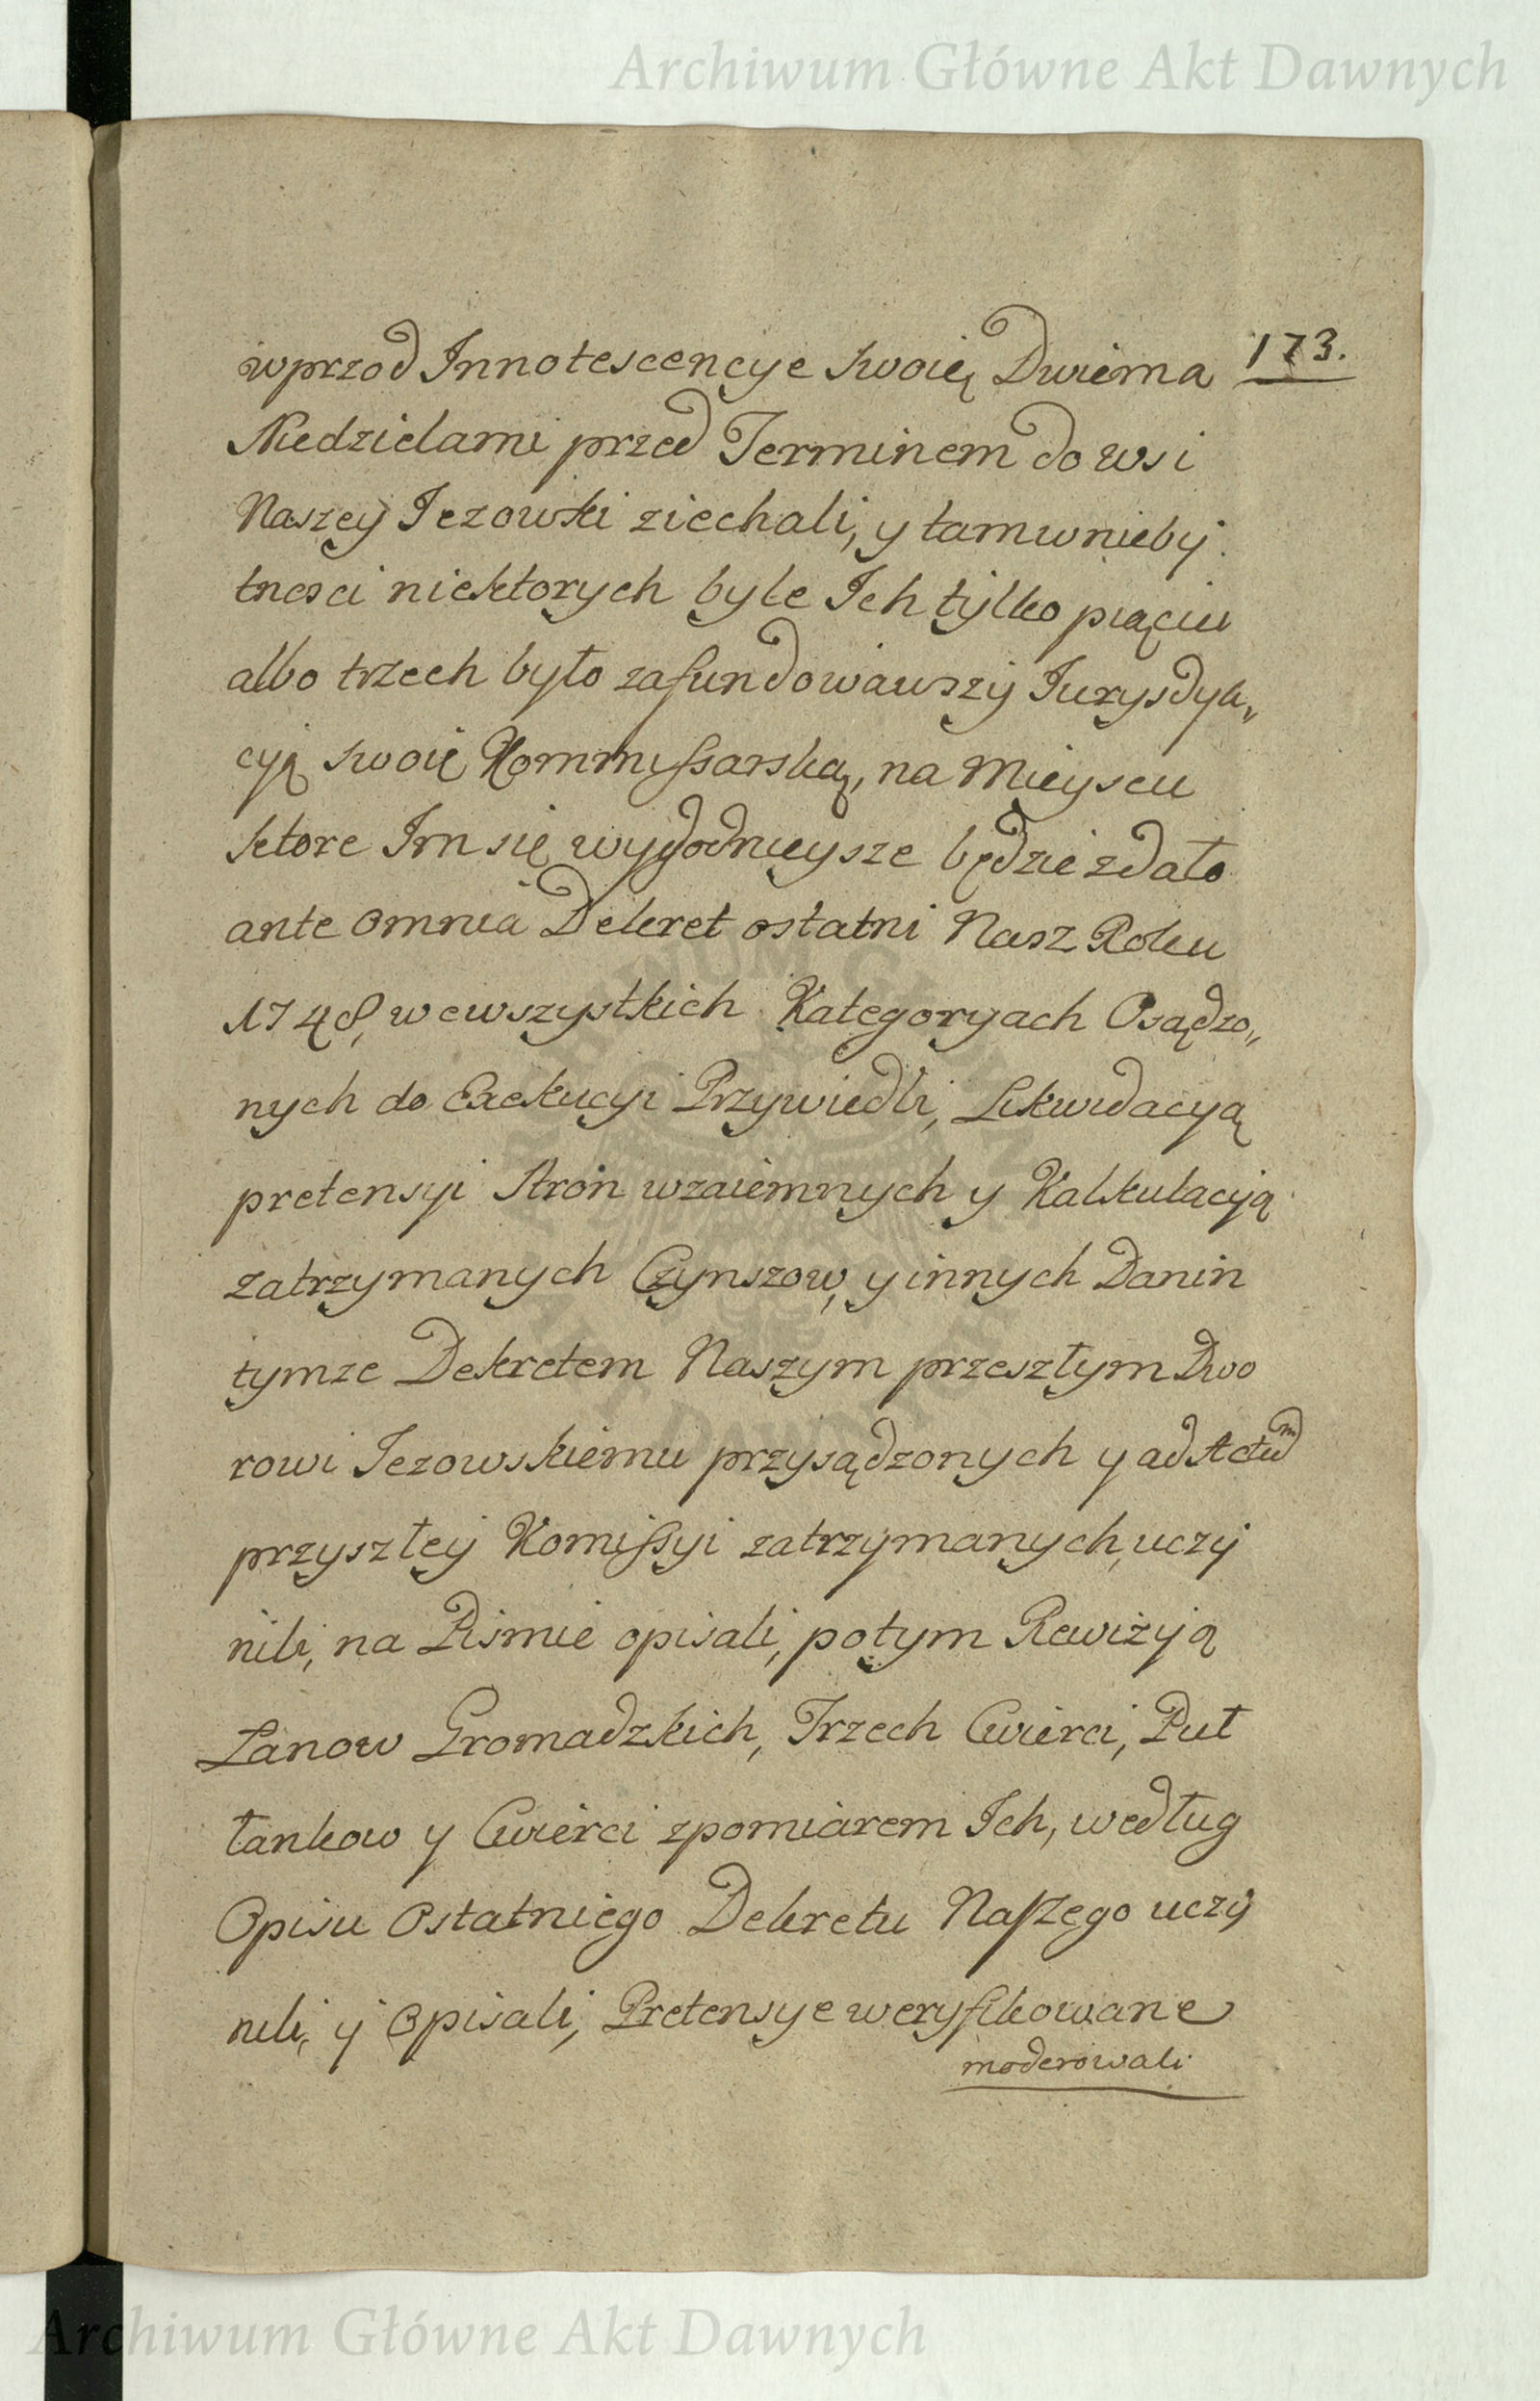 Archiwum Główne Akt Dawnych
173.
wprzod Innotescencye swoię Dwiema
Niedzielami przed Terminem do wsi
Naszey Iezowski ziechali, y tam w nieby
tnosci niektorych byle Ich tylko pięciu
albo trzech było zafundowawszy Iurysdyk„
cyą swoię Kommissarską, na Mieyscu
ktore Im się wygodnieysze będzie zdało
ante omnia Dekret ostatni Nasz Roku
1748, we wszystkich Kategoryach Osądzo„
nych do Exekucyi Przywiedli, Likwidacyą
pretensyi Stron wzaiemnych y Kalkulacyą
zatrzymanych Czynszow, y innych Danin
tymze Dekretem Naszym przeszłym Dwo
rowi Iezowskiemu przysądzonych y ad Actum
przyszłey Komissyi zatrzymanych, uczy
nili, na Pismie opisali, potym Rewizyą
Łanow Gromadzkich, Trzech Cwierci, Puł
łankow y Cwierci z pomiarem Ich, według
Opisu Ostatniego Dekretu Naszego uczy
nili, y Opisali, Pretensye weryfikowane
moderowali
Archiwum Główne Akt Dawnych